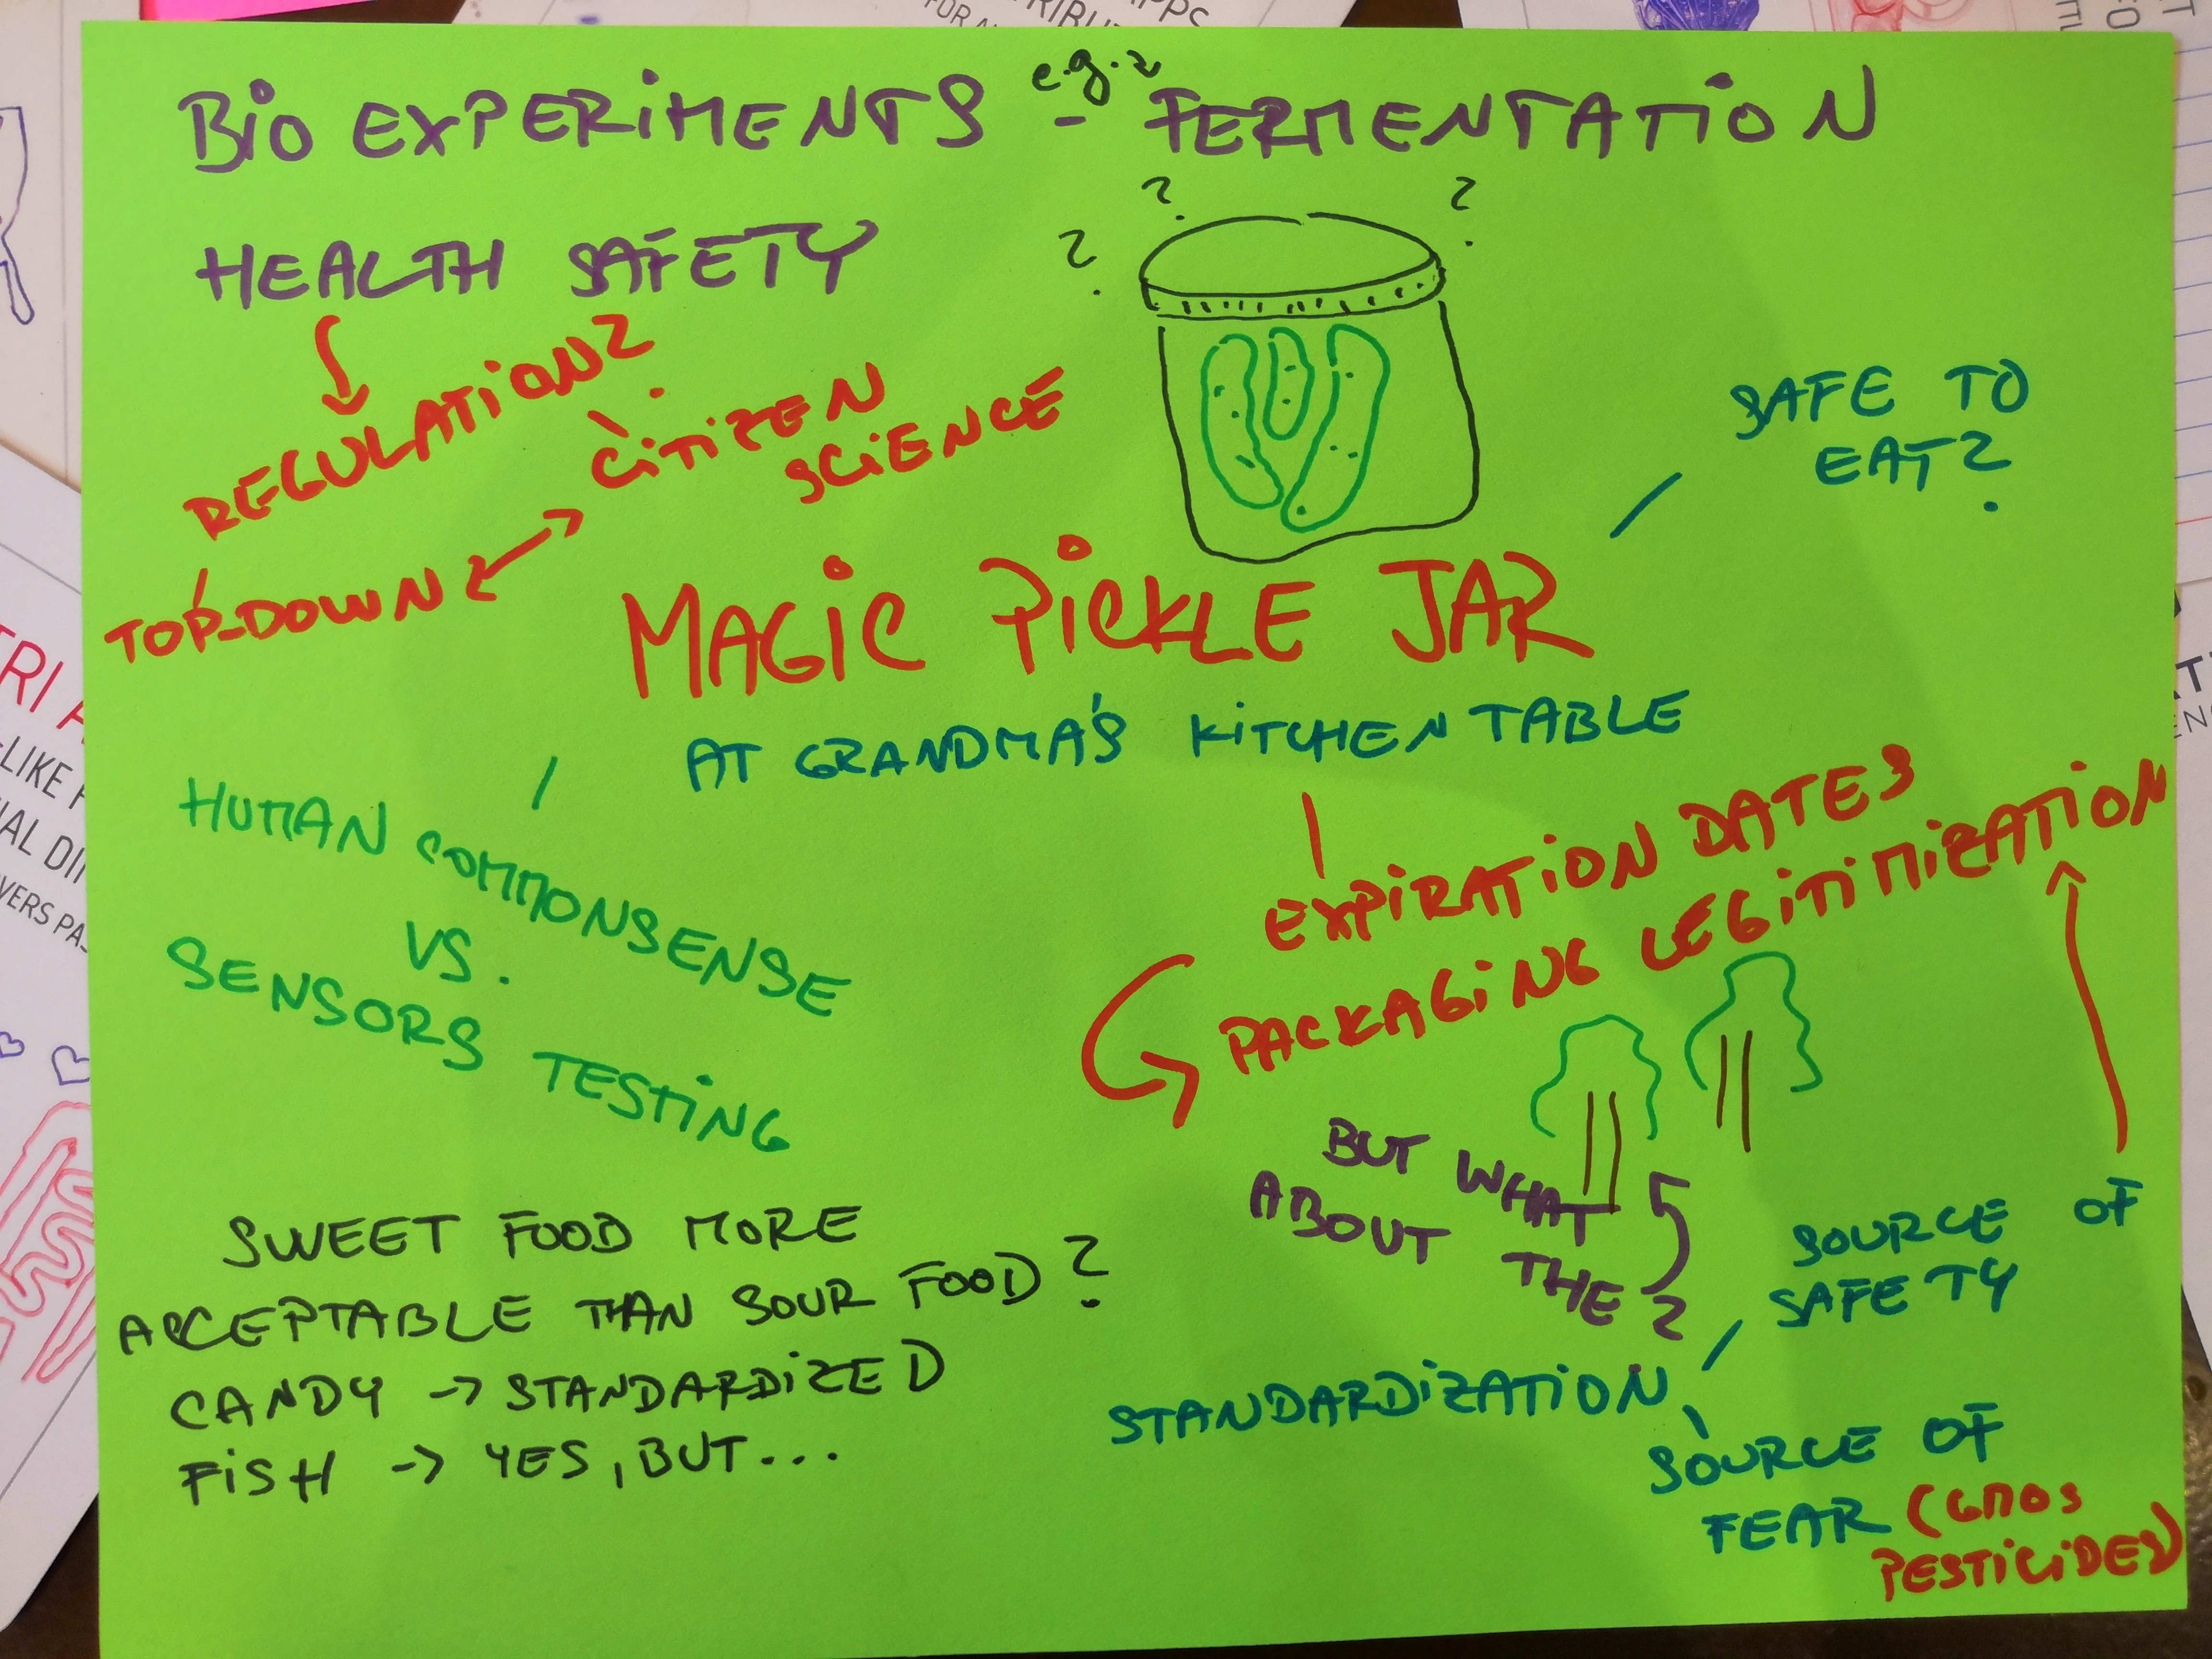 BIO EXPERIMENTS - e.g. FERMENTATION
HEALTH SAFETY
? ? ?
REGULATION?
CITIZEN
SCIENCE
TOP-DOWN
SAFE TO
EAT?
MAGIC PICKLE JAR
AT GRANDMA'S KITCHEN TABLE
HUMAN COMMONSENSE
VS.
SENSORS TESTING
EXPIRATION DATES
PACKAGING LEGITIMIZATION
BUT WHAT
ABOUT THE ?
SOURCE OF
SAFETY
STANDARDIZATION
SOURCE OF
FEAR (GMOS
PESTICIDES)
SWEET FOOD MORE
ACCEPTABLE THAN SOUR FOOD?
CANDY -> STANDARDIZED
FISH -> YES, BUT...
TRI
-LIKE
VERS